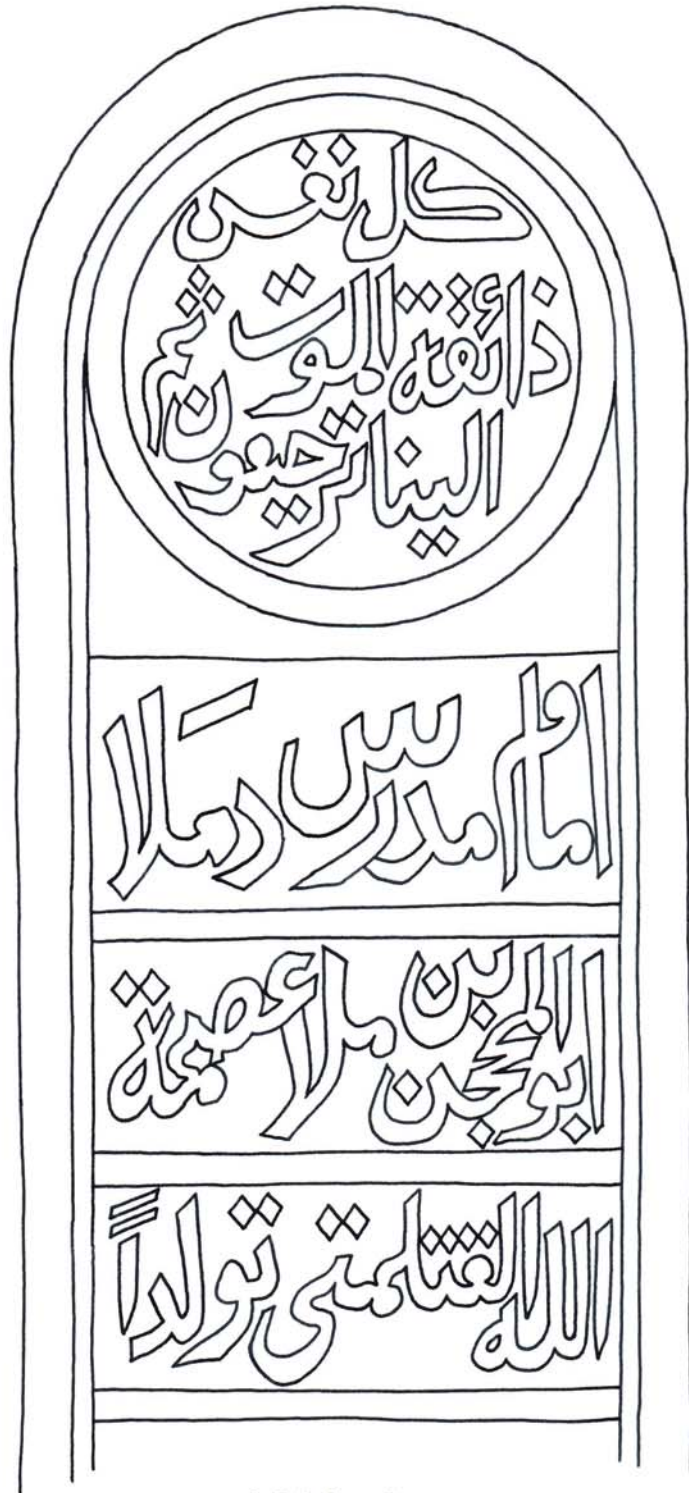 كل نفس
ذائقة الموت ثم
الينا ترجعون
امام مدرس دملا
ابو المحجن بن ملا عصمة
الله القتلمتى تولداً